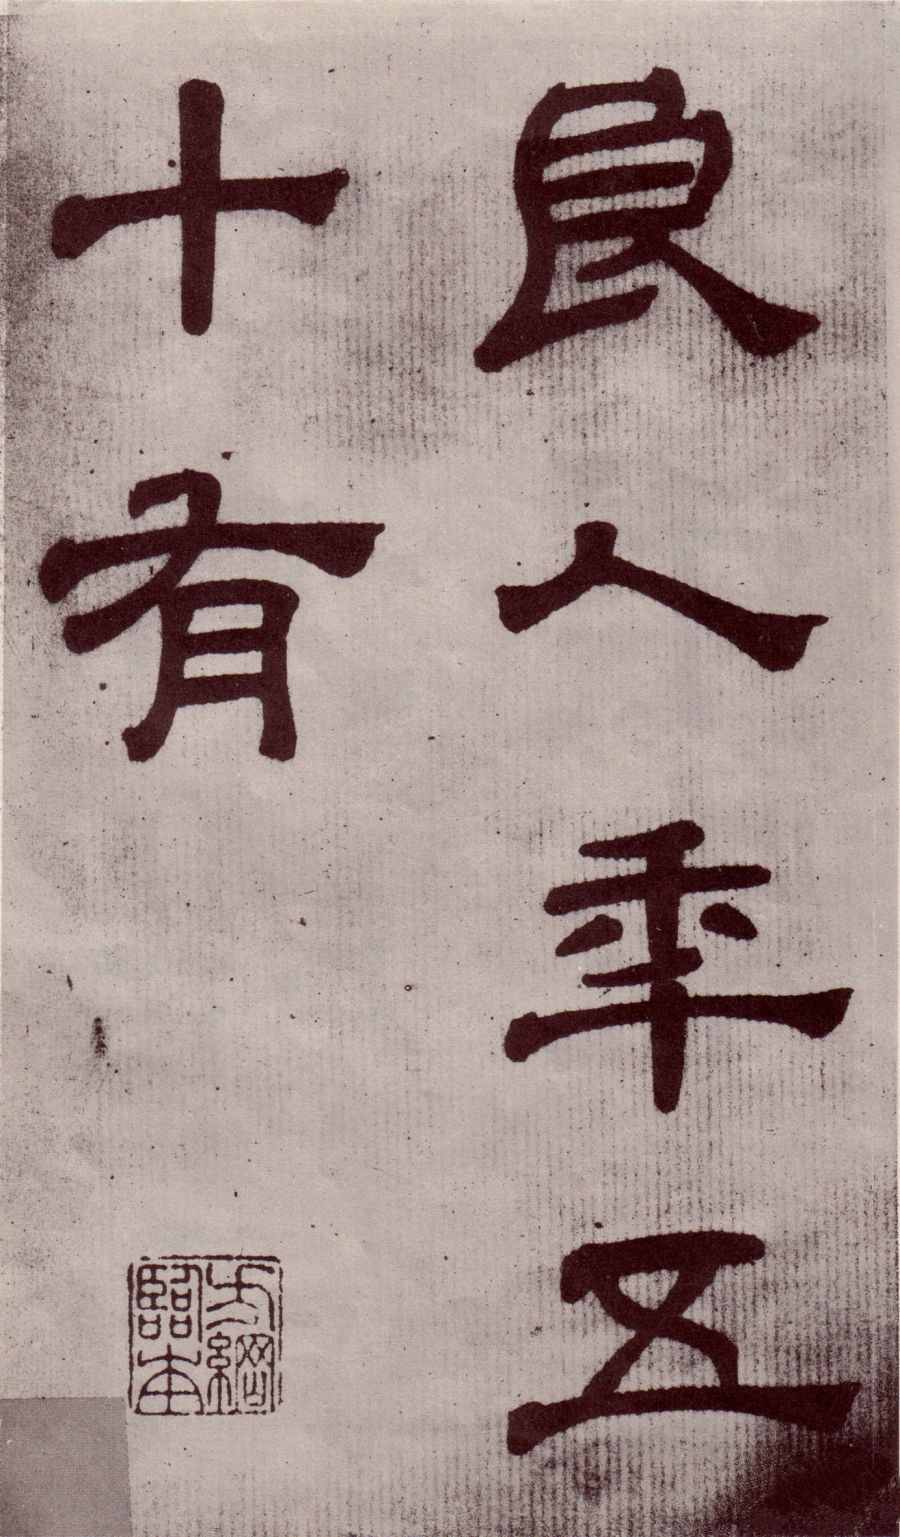 良人年五
十有
方綱
臨本